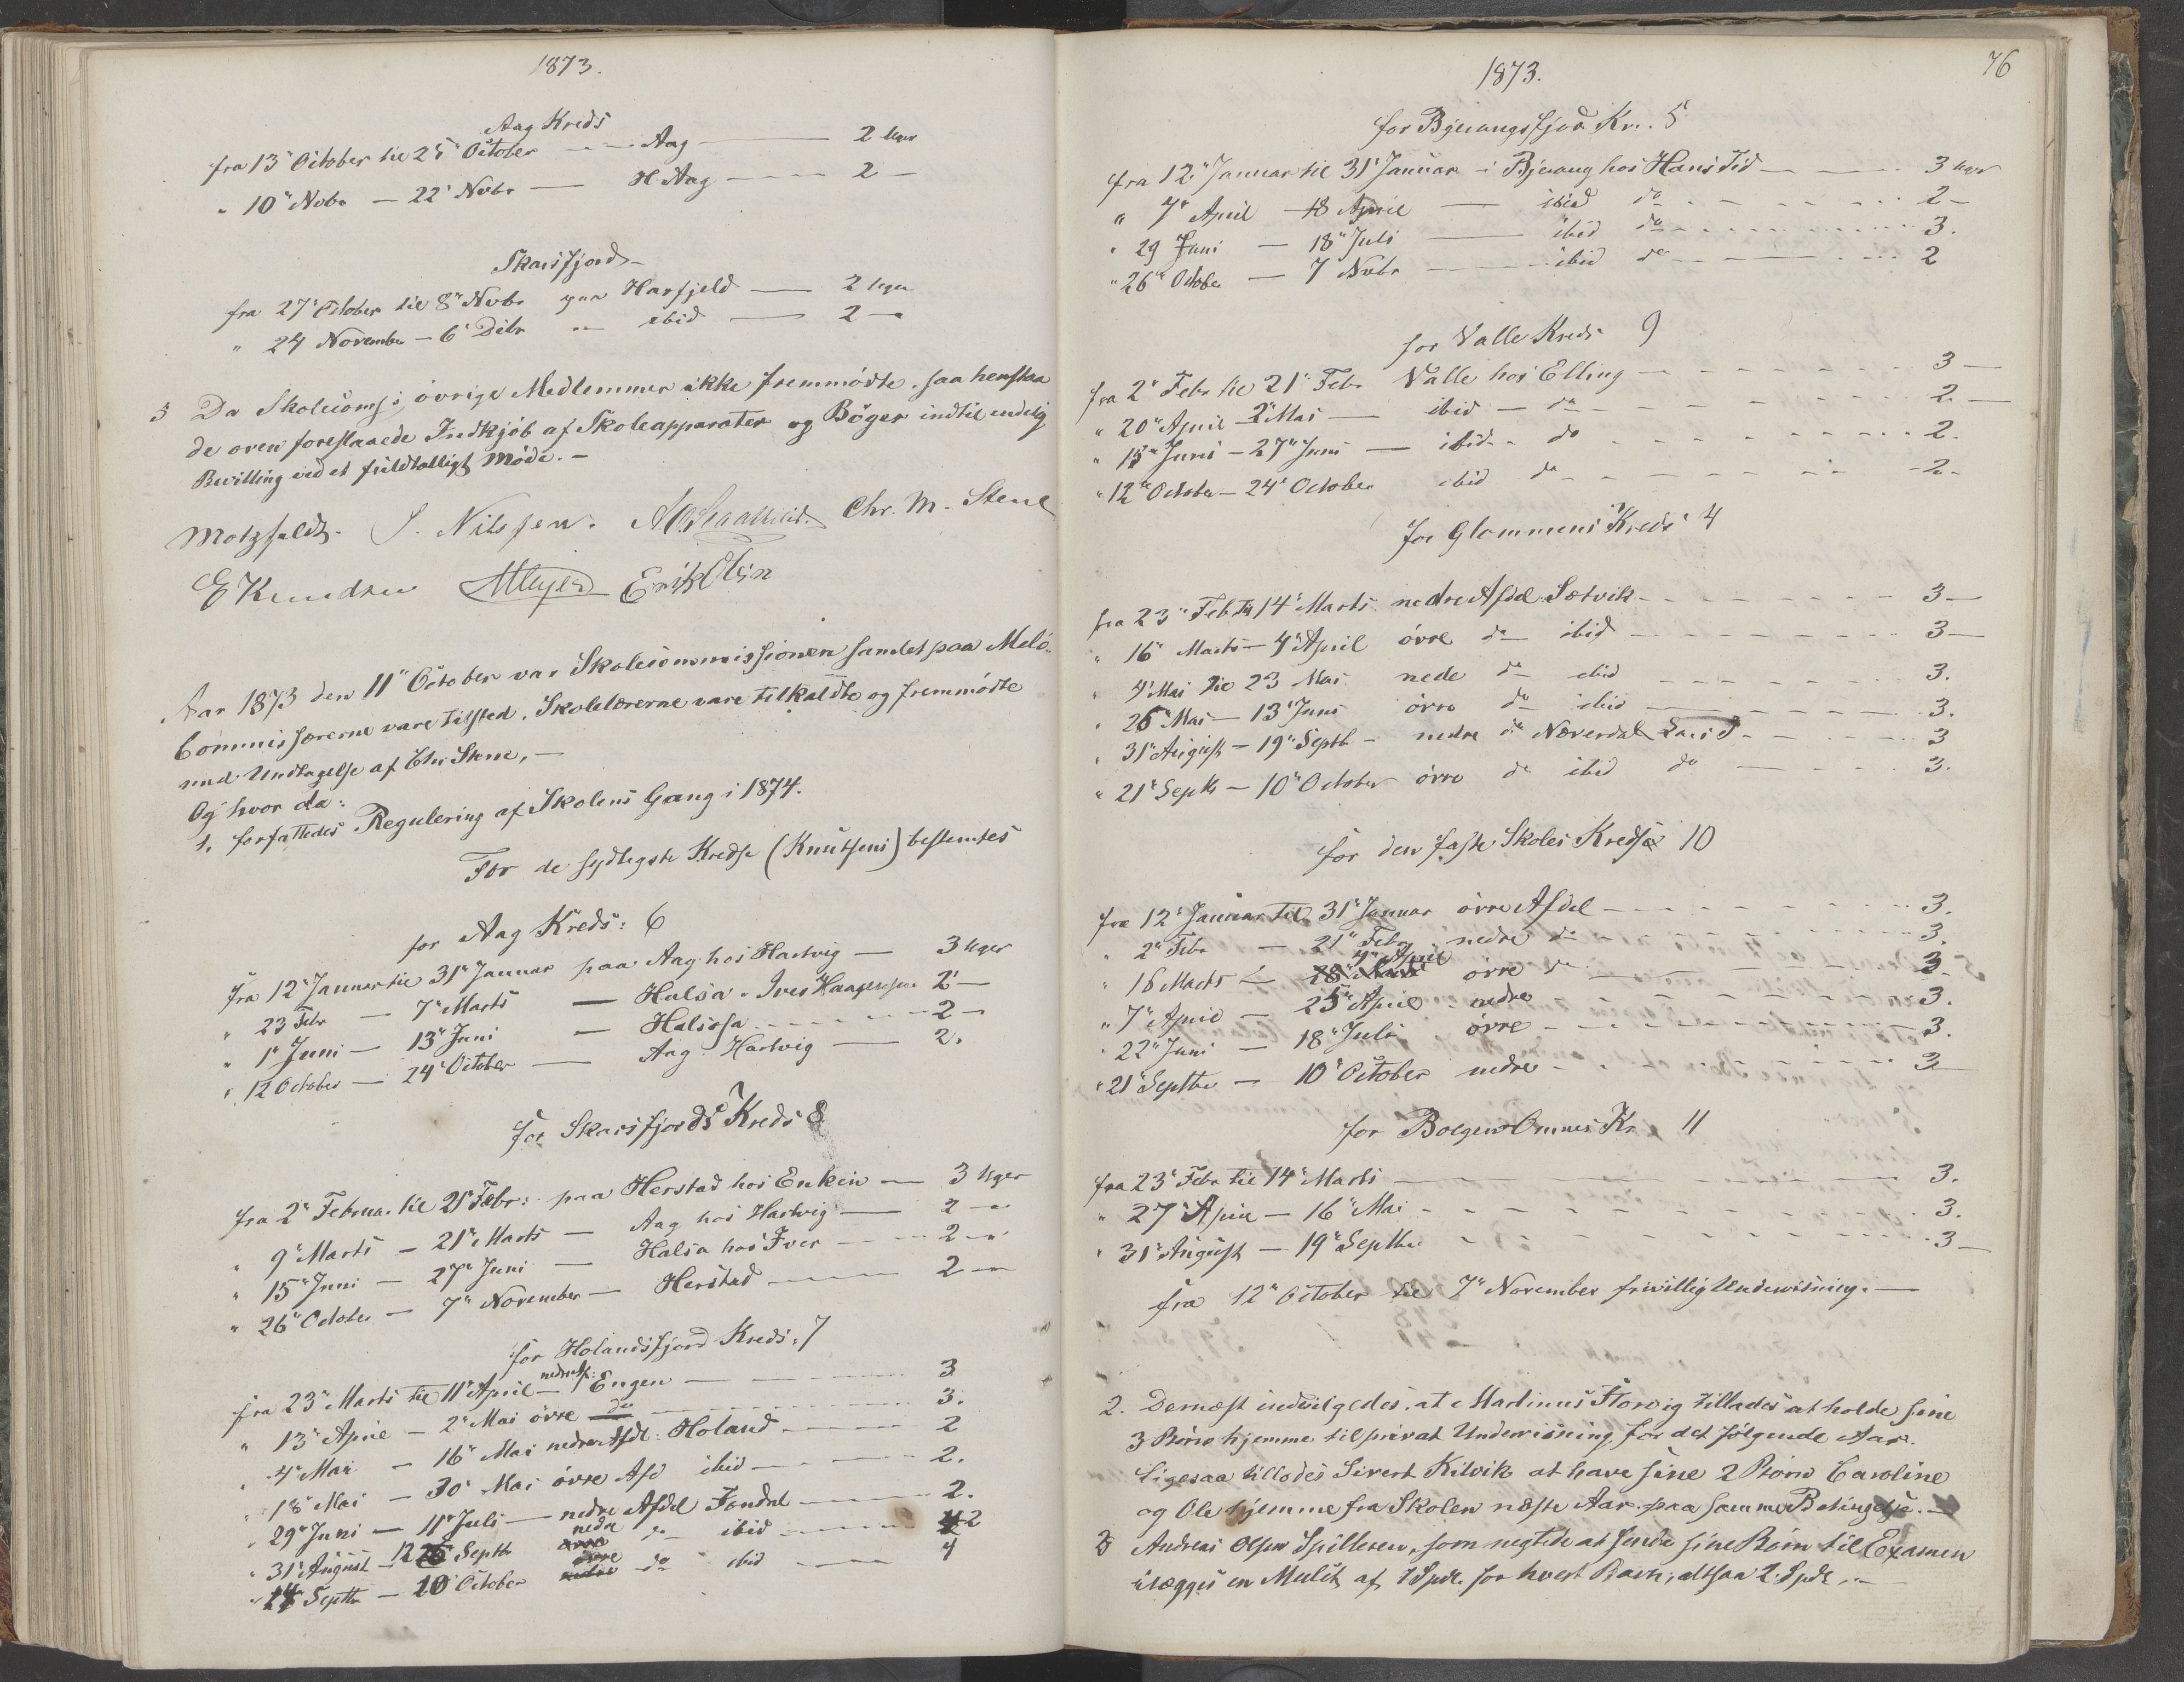 1873.
Aag Kreds
fra 13de October til 25 October — Aag — 2 Uger
" 10" Nvbr — 22' Nvbr — H. Aag — 2 —
Skarsfjord —
fra 27' October til 8" Nvbr paa Harfjeld — 2 Uger
" 24 November — 6' Dcbr " ibid — 2 —
3 Da Skolecoms: øvrige Medlemmer ikke fremmødte, saa henstaa
de oven foreslaaede Indkjøb af Skoleapparater og Bøger indtil endelig
Bevilling ved et fuldtalligt Møde. —
Motzfeldt. S. Nilssen. Chr. M. Stene
E Knudsen Meyer Erik Olsen
Aar 1873 den 11" October var Skolecommissionen samlet paa Melø.
Commissærerne vare tilsted. Skolelærerne vare tilkaldte og fremmødte
med Undtagelse af Chr Stene, —
Og hvor da:
1, forfattedes Regulering af Skolens Gang i 1874.
For de sydligste Kredse (Knutsens) bestemtes
for Aag Kreds: 6
fra 12" Januar til 31" Januar paa Aag hos Hartvig — 3 Uger
" 23 Febr — 7" Marts — Halsa — Iver Haagensen 2 —
" 1" Juni — 13" Juni — Halsa — 2 —
" 12 October — 24" October — Aag. Hartvig — 2.
for Skarsfjords Kreds 8
fra 2" Februar til 21" Febr: paa Herstad hos Enkein — 3 Uger
" 9" Marts — 21" Marts — Aag hos Hartvig — 2 —
" 15" Juni — 27" Juni — Halsa hos Iver — 2 —
" 26" October — 7" November — Herstad — 2 —
for Holandsfjord Kreds: 7
fra 23" Marts til 11" April — nedre Af: Engen — 3
" 13" April — 2" Mai øvre do — 3.
" 4" Mai — 16" Mai nedre Afdl: Holand — 2
" 18" Mai — 30" Mai øvre Afd ibid — 2.
" 29" Juni — 11" Juli — nedre Afdel Fondal — 2.
" 31" August — 12 Septbr nedre do ibid — 2
" 14 Septbr — 10 October øvre do ibid — 4
1873. 76
for Bjerangsfjord Kr. 5
fra 12" Januar til 31" Januar i Bjerang hos Hans Tid — 3 Uger
" 7" April — 18 April — ibid do — 2 —
" 29 Juni — 18" Juli — ibid do — 3.
" 26" October — 7 Nvbr — ibid do — 2
for Valle Kreds 9
fra 2" Febr til 21" Febr Valle hos Elling — 3 —
" 20" April — 2" Mai — ibid — do — 2. —
" 15" Juni — 27" Juni — ibid — do — 2.
" 12" October — 24" October ibid do — 2 —
for Glommens Kreds 4
fra 23" Feb til 14" Marts nedre Afdel Sætvik — 3 —
" 16" Marts — 4" April øvre do ibid — 3 —
" 4" Mai til 23 Mai nede do ibid — 3.
" 25" Mai — 13" Juni øvre do ibid — 3.
" 31" August — 19" Septb — nedre do Neverdal Lars S — 3
" 21" Septb — 10" October øvre do ibid do — 3.
for den faste Skoles Kredse 10
fra 12" Januar til 31" Januar øvre Afdel — 3.
" 2" Febr — 21" Febr nedre do — 3.
" 16 Marts — 4" April øvre do — 3
" 7" April — 25" April nedre — 3.
" 22" Juni — 18" Juli øvre — 3.
" 21" Septbr — 10" October nedre — 3
for Bolgen Omnes Kr 11
fra 23" Febr til 14" Marts — 3.
" 27" April — 16" Mai — 3.
" 31" August — 19" Septbr — 3 —
fra 12" October til 7" November frivillig Underviisning. —
2. Dernæst indvilgedes, at Martinus Storvig tillades at holde sine
3 Børn hjemme til privat Underviisning for det følgende Aar.
Ligesaa tillodes Sivert Kilvik at have sine 2 Børn Caroline
og Ole hjemme fra Skolen næste Aar paa samme Betingelse. —
3 Andreas Olsen Spilderen, som negtede at sende sine Børn til Examen
ilægges en Mulct af 1 Spdl. for hvert Barn, altsaa 2 Spdl. —